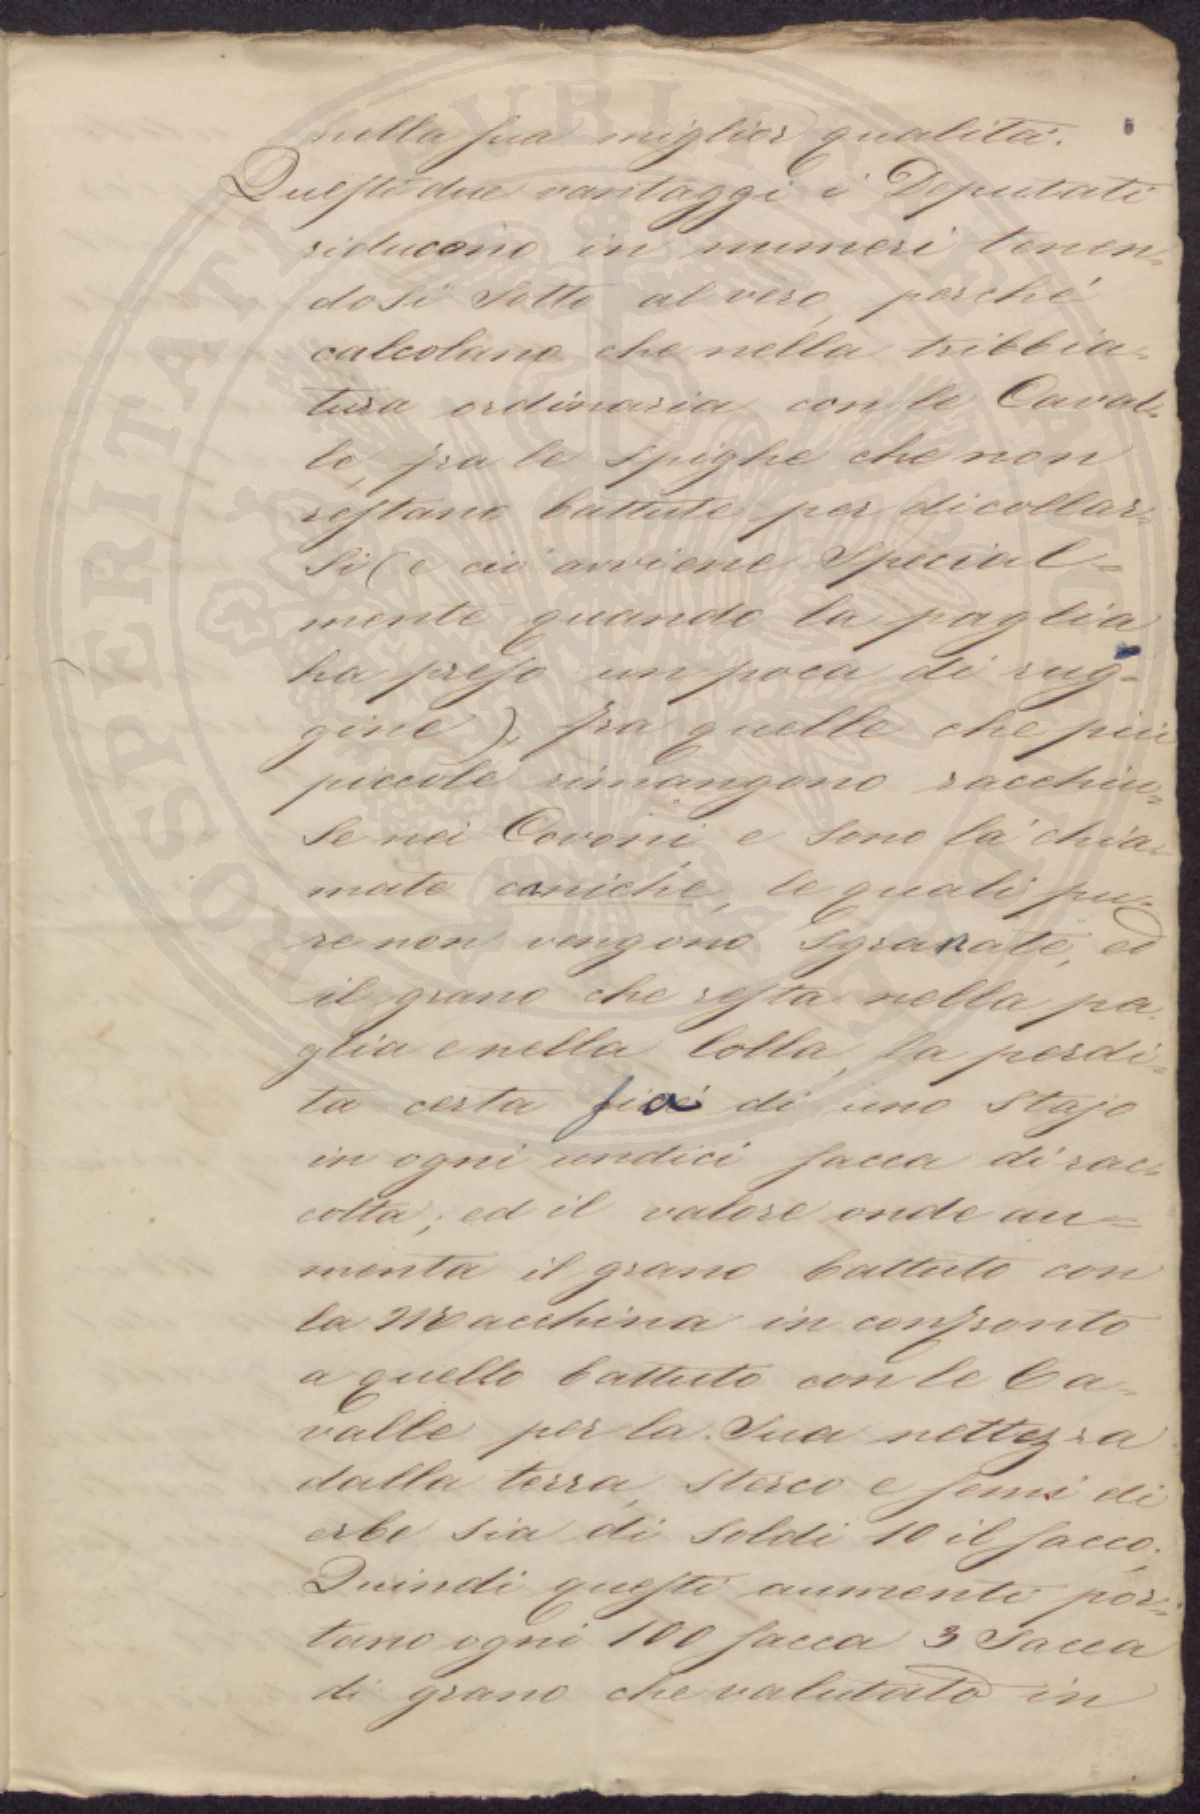 nella sua miglior qualità.
Questi due vantaggi i Deputati
riducono in numeri tenen-
dosi sotto al vero, perché
calcolano che nella tribbia-
tura ordinaria con le Caval-
le, fra le spighe che non
restano battute per dicollar-
si (e ciò avviene special-
mente quando la paglia
ha preso un poca di rug-
gine), fra quelle che più
piccole rimangono racchiu-
se nei Covoni, e sono là chia-
mate coniche, le quali pu-
re non vengono sgranate, ed
il grano che resta nella pa-
glia e nella lolla, la perdi-
ta certa sia di uno stajo
in ogni undici sacca di rac-
colta; ed il valore onde au-
menta il grano battuto con
la Macchina in confronto
a quello battuto con le Ca-
valle per la sua nettezza
dalla terra, sterco e semi di
erbe sia di soldi 10 il sacco.
Quindi questi aumenti por-
tano ogni 100 sacca 3 sacca
di grano che valutato in
PROSPERITATI PUBLICAE